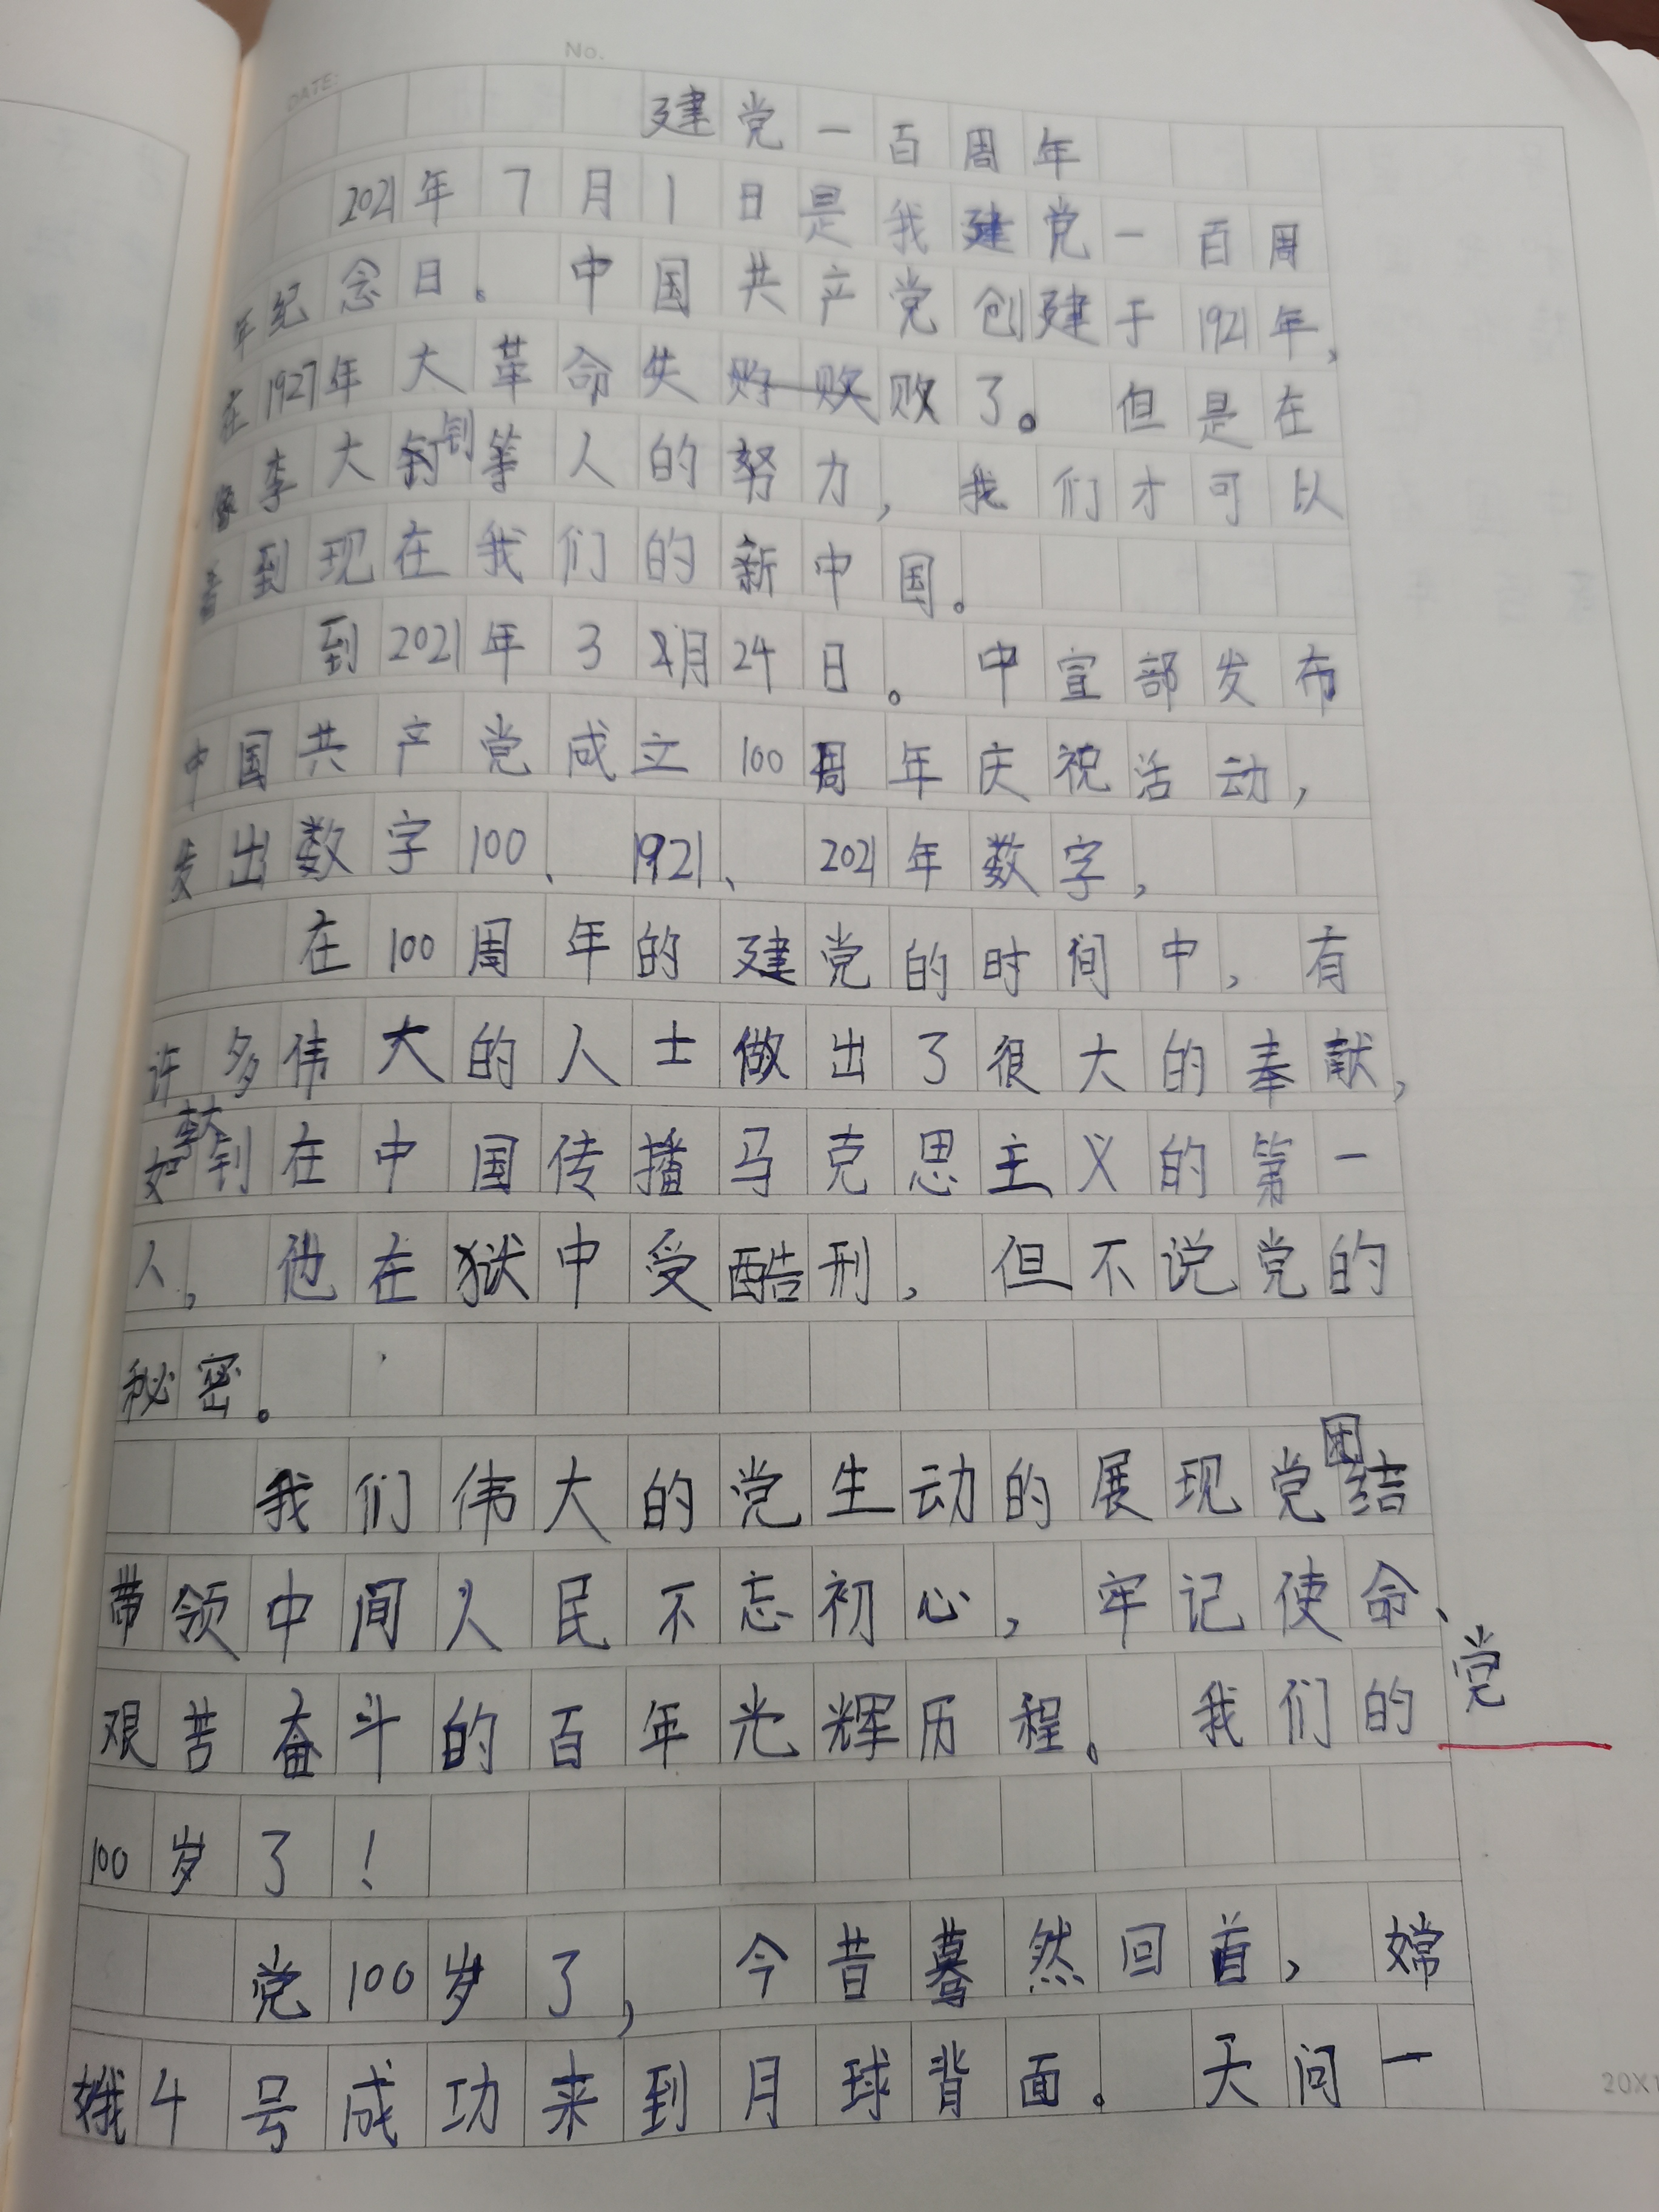 No.
DATE:
建党一百周年
2021年7月1日是我建党一百周
年纪念日。中国共产党创建于1921年,
在1927年大革命失败了。但是在
李大钊等人的努力,我们才可以
看到现在我们的新中国。
到2021年3月24日。中宣部发布
中国共产党成立100周年庆祝活动,
发出数字100、1921、2021年数字,
在100周年的建党的时间中,有
许多伟大的人士做出了很大的奉献,
如李大钊在中国传播马克思主义的第一
人,他在狱中受酷刑,但不说党的
秘密。
我们伟大的党生动的展现党团结
带领中间人民不忘初心,牢记使命、
艰苦奋斗的百年光辉历程。我们的党
100岁了!
党100岁了,今昔蓦然回首,嫦
娥4号成功来到月球背面。天问一